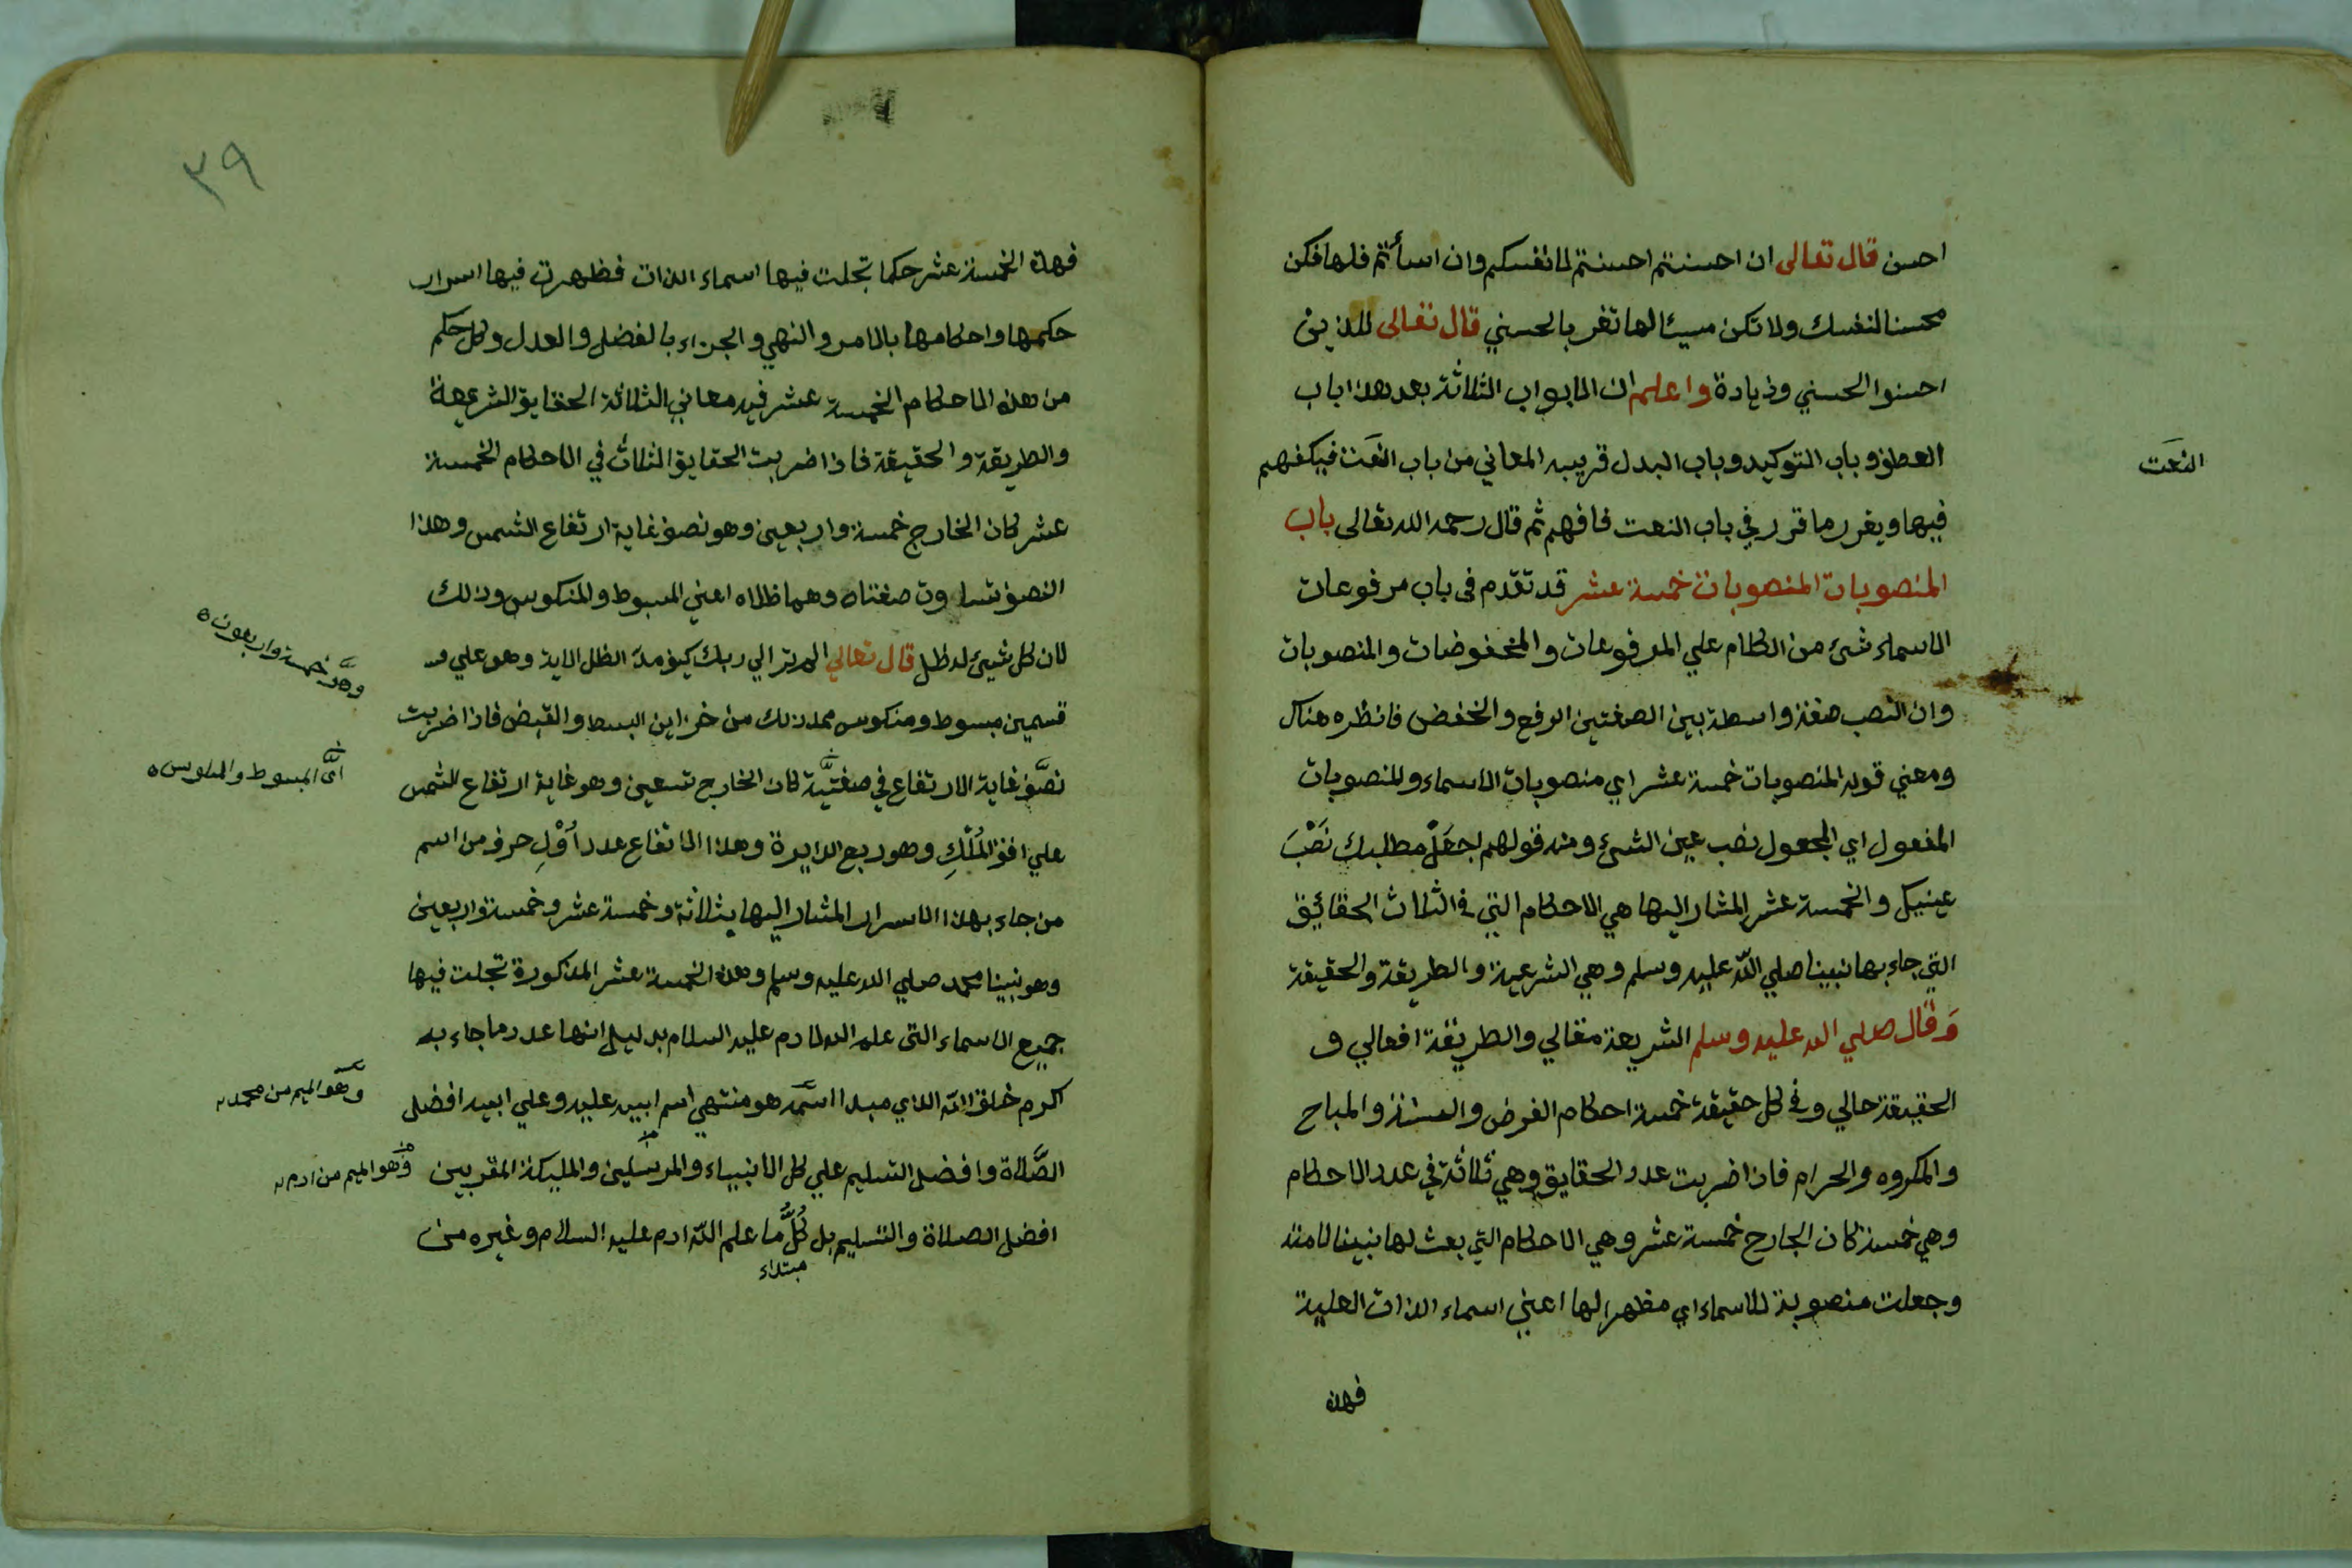 احسن قال تعالى ان احسنتم احسنتم لانفسكم وان اسأتم فلها فكن
محسنا لنفسك ولا تكن مسيئا لها تفز بالحسني قال تعالى للذين
احسنوا الحسني وزيادة واعلم ان الابواب الثلاثة بعد هذا باب
العطف وباب التوكيد وباب البدل قريبه المعاني من باب النعت فيكفهم
النعت
فيها ويقرر ما قرر في باب النعت فافهم ثم قال رحمه الله تعالى باب
المنصوبات المنصوبات خمسة عشر قد تقدم في باب مرفوعات
الاسماء شئ من الكلام علي المرفوعات والمخفوضات والمنصوبات
وان النصب صفة واسطة بين الصفتين الرفع والخفض فانظره هناك
ومعني قوله المنصوبات خمسة عشر اي منصوبات الاسماء والمنصوبات
المفعول اي المجعول نصب عين الشئ ومنه قولهم اجعل مطلبك نصب
عينيك والخمسة عشر المشار اليها هي الاحكام التي في الثلاث الحقائق
التي جاء بها نبينا صلي الله عليه وسلم وهي الشرعية والطريقة والحقيقة
وقال صلي الله عليه وسلم الشريعة مقالي والطريقة افعالي و
الحقيقة حالي وفي كل حقيقة خمسة احكام الفرض والسنة والمباح
والمكروه والحرام فاذا ضربت عدد الحقايق وهي ثلاثة في عدد الاحكام
وهي خمسة كان الخارج خمسة عشر وهي الاحكام التي بعث لها نبينا لامته
وجعلت منصوبة للاسماء اي مظهرا لها اعني اسماء الذات العلية
فهذه
٣٩
فهذه الخمسة عشر حكما تجلت فيها اسماء الذات فظهرت فيها اسرار
حكمها واحكامها بالامر والنهي والجزاء بالفضل والعدل وكل حكم
من هذه الاحكام الخمسة عشر فيه معاني الثلاثة الحقايق الشرعية
والطريقة والحقيقة فاذا ضربت الحقايق الثلاث في الاحكام الخمسة
عشر كان الخارج خمسة واربعين وهو نصف غاية ارتفاع الشمس وهذا
النصف تساوت صفتاه وهما ظلاه اعني المبسوط والمنكوس وذلك
وهو خمسة واربعون
لان كل شيئ له ظل قال تعالي الم تر الي ربك كيف مد الظل الاية وهو علي
قسمين مبسوط ومنكوس ممد ذلك من خزاين البسط والقبض فاذا ضربت
اي المبسوط والمنكوس
نصف غاية الارتفاع في صفتيه كان الخارج تسعين وهو غاية ارتفاع الشمس
علي افق الملك وهو ربع الدايرة وهذا الاتفاع عدد اول حرف من اسم
من جاء بهذا الاسرار المشار اليها بثلاثة وخمسة عشر وخمسة واربعين
وهو نبينا محمد صلي الله عليه وسلم وهذه الخمسة عشر المذكورة تجلت فيها
جميع الاسماء التي علم الله ادم عليه السلام بدليل انها عدد ما جاء به
اكرم خلق الله الذي مبدا اسمه هو منتهي اسم ابيه عليه وعلي ابيه افضل
وهو الميم من محمد
الصلاة وافضل التسليم علي كل الانبياء والمرسلين والمليكة المقربين
وهو الميم من ادم
افضل الصلاة والتسليم بل كل ما علم الله ادم عليه السلام وغيره من
مبتداء